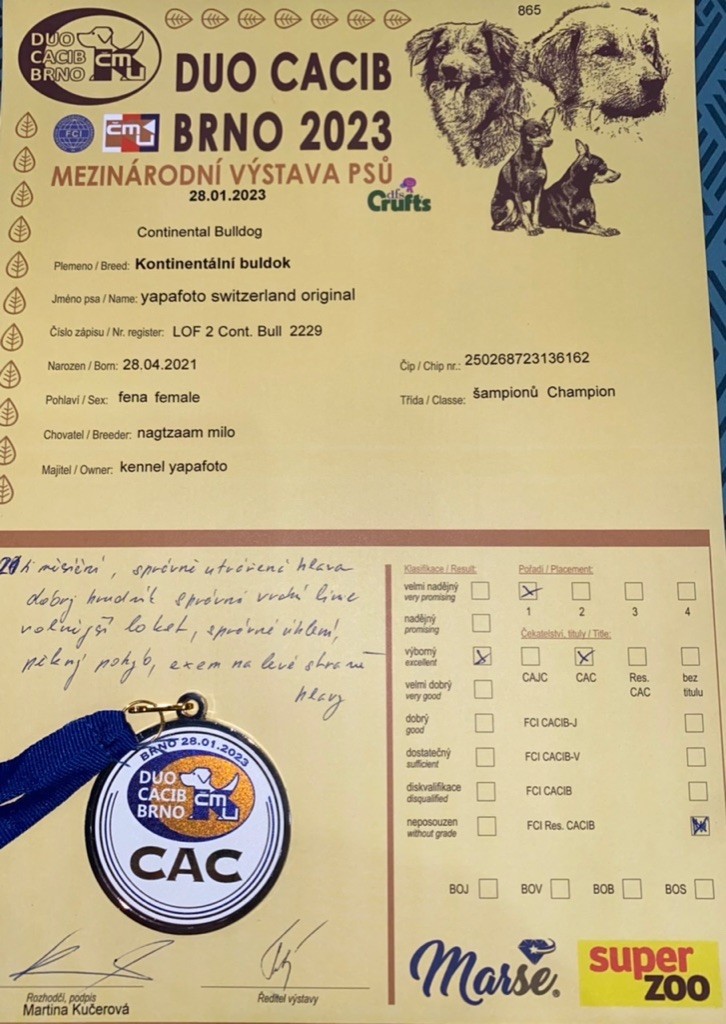 865
DUO
CACIB
BRNO
ČMKU
DUO CACIB
FCI
ČMKU
BRNO 2023
MEZINÁRODNÍ VÝSTAVA PSŮ
28.01.2023
dfs
Crufts
Continental Bulldog
Plemeno / Breed: Kontinentální buldok
Jméno psa / Name: yapafoto switzerland original
Číslo zápisu / Nr. register: LOF 2 Cont. Bull 2229
Narozen / Born: 28.04.2021
Čip / Chip nr.: 250268723136162
Pohlaví / Sex: fena female
Třída / Classe: šampionů Champion
Chovatel / Breeder: nagtzaam milo
Majitel / Owner: kennel yapafoto
21 ti měsíční, správně utvářená hlava
dobrý hrudník správná vrchní linie
volnější loket, správné úhlení,
pěkný pohyb, exem na levé straně
hlavy
Klasifikace / Result:
velmi nadějný
very promising
nadějný
promising
výborný
excellent
velmi dobrý
very good
dobrý
good
dostatečný
sufficient
diskvalifikace
disqualified
neposouzen
without grade
Pořadí / Placement:
1 2 3 4
Čekatelství, tituly / Title:
CAJC CAC Res. CAC bez titulu
FCI CACIB-J
FCI CACIB-V
FCI CACIB
FCI Res. CACIB
BOJ BOV BOB BOS
BRNO 28.01.2023
DUO
CACIB
BRNO
ČMKU
CAC
Rozhodčí, podpis
Martina Kučerová
Ředitel výstavy
Marse®
super
zoo